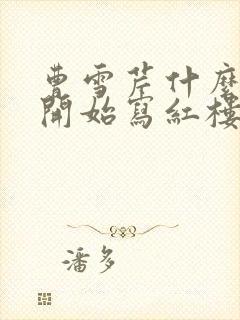 曹雪芹什麼
開始寫紅樓
潘多